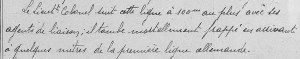 Le Lieut. Colonel suit cette ligne à 200m au plus avec ses
agents de liaison, il tombe mortellement frappé en arrivant
à quelques mètres de la première ligne allemande.